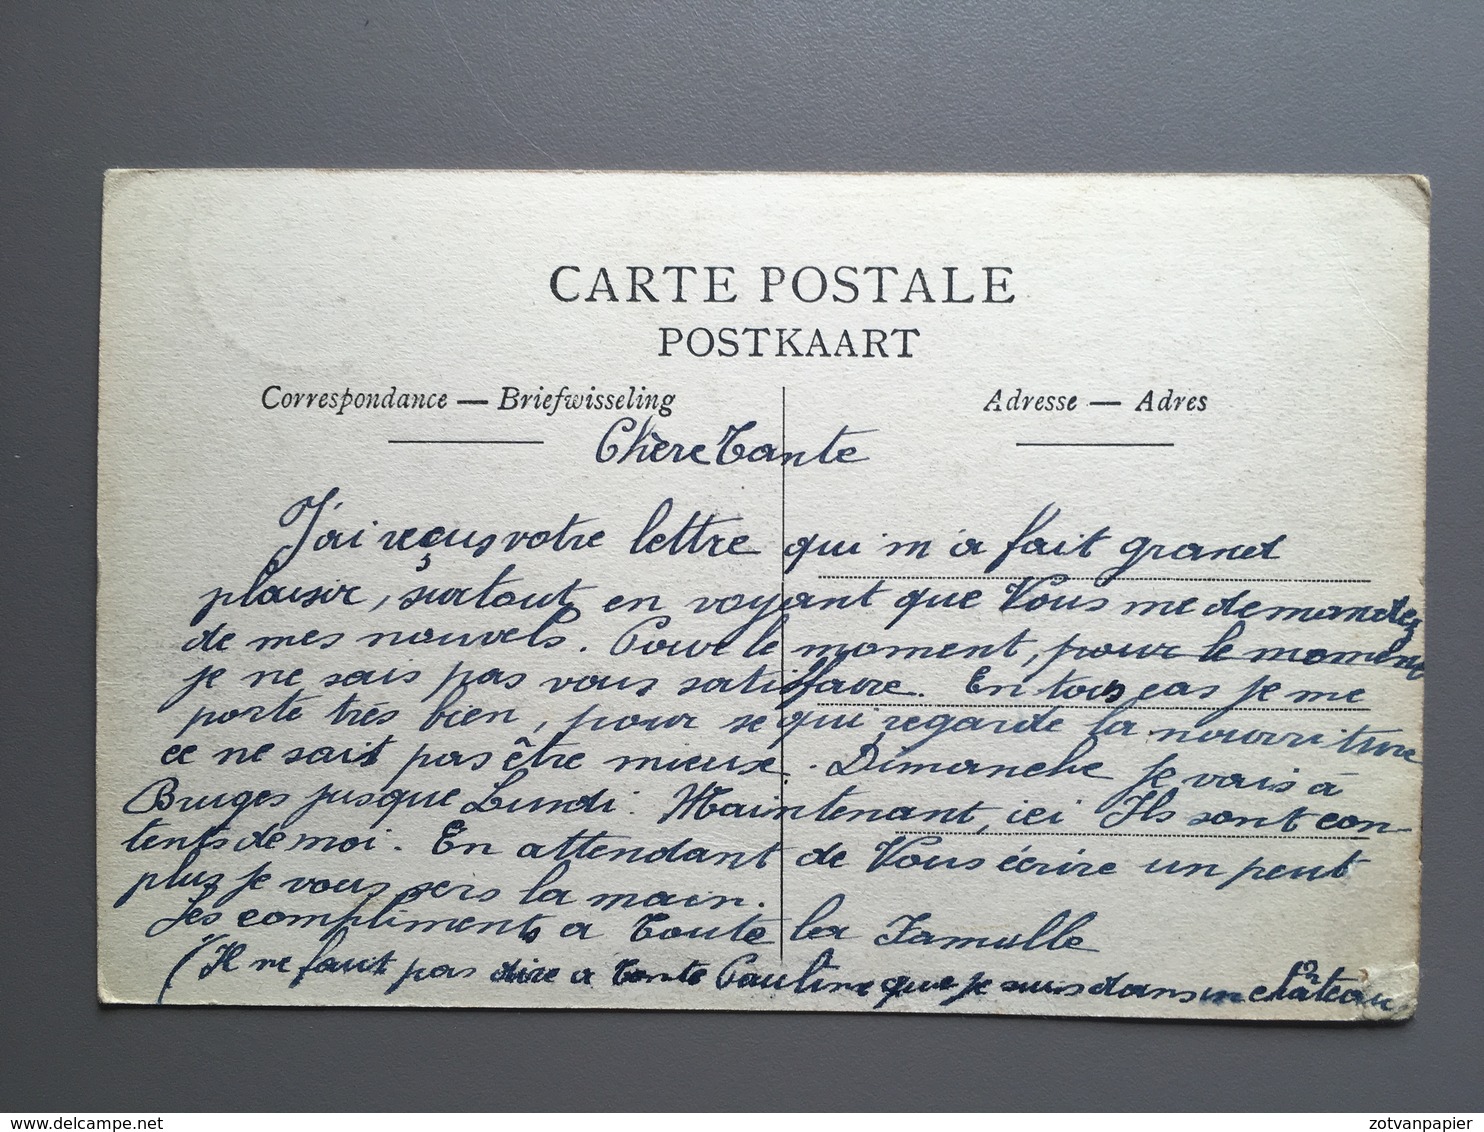 CARTE POSTALE
POSTKAART
Correspondance — Briefwisseling
Adresse — Adres
Chère Tante
J'ai reçus votre lettre qui m'a fait grand
plaisir, surtout en voyant que Vous me demandez
de mes nouvels. Pour le moment, pour le moment
je ne sais pas vous satisfaire. En tous cas je me
porte très bien, pour se qui regarde la nourriture
ce ne sait pas être mieux. Dimanche je vais à
Bruges jusque Lundi. Maintenant, ici Ils sont con-
tents de moi. En attendant de Vous écrire un peut
plus je vous sers la main.
Les compliments a toute la Famille
(Il ne faut pas dire a tante Pauline que je suis dans un château
www.delcampe.net
zotvanpapier